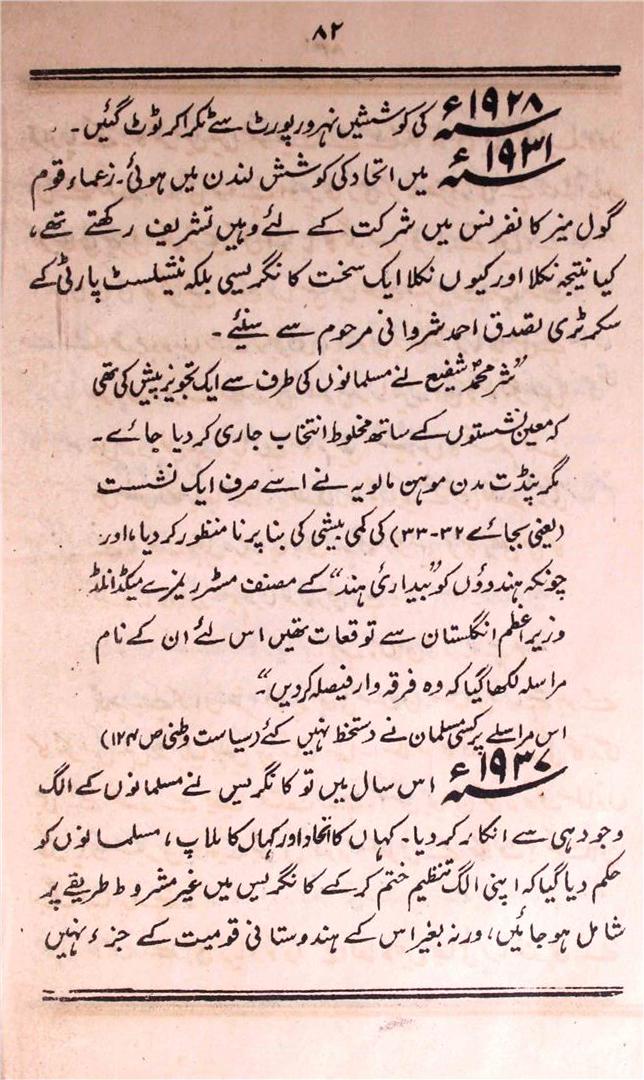 ۸۲
۱۹۲۸ء کی کوششیں نہرو رپورٹ سے ٹکرا کر ٹوٹ گئیں۔
۱۹۳۱ء میں اتحاد کی کوشش لندن میں ہوئی۔ زعماء قوم
گول میز کانفرنس میں شرکت کے لئے وہیں تشریف رکھتے تھے،
کیا نتیجہ نکلا اور کیوں نکلا ایک سخت کانگریسی بلکہ نیشلسٹ پارٹی کے
سکرٹری تصدق احمد شروانی مرحوم سے سنیئے۔
”سر محمد شفیع نے مسلمانوں کی طرف سے ایک تجویز پیش کی تھی
کہ معین نشستوں کے ساتھ مخلوط انتخاب جاری کر دیا جائے۔
مگر پنڈت مدن موہن مالویہ نے اسے صرف ایک نشست
(یعنی بجائے ۳۲-۳۳) کی کمی بیشی کی بنا پر نا منظور کر دیا، اور
چونکہ ہندوؤں کو ”بیداریٔ ہند“ کے مصنف مسٹر ریمزے میکڈانلڈ
وزیر اعظم انگلستان سے توقعات تھیں اس لئے ان کے نام
مراسلہ لکھا گیا کہ وہ فرقہ وار فیصلہ کر دیں“۔
اس مراسلے پر کسی مسلمان نے دستخط نہیں کئے (سیاست وطنی ص ۱۲۴)
۱۹۳۷ء اس سال میں تو کانگریس نے مسلمانوں کے الگ
وجود ہی سے انکار کر دیا۔ کہاں کا اتحاد اور کہاں کا ملاپ، مسلمانوں کو
حکم دیا گیا کہ اپنی الگ تنظیم ختم کر کے کانگریس میں غیر مشروط طریقے پر
شامل ہو جائیں، ورنہ بغیر اس کے ہندوستانی قومیت کے جزء نہیں